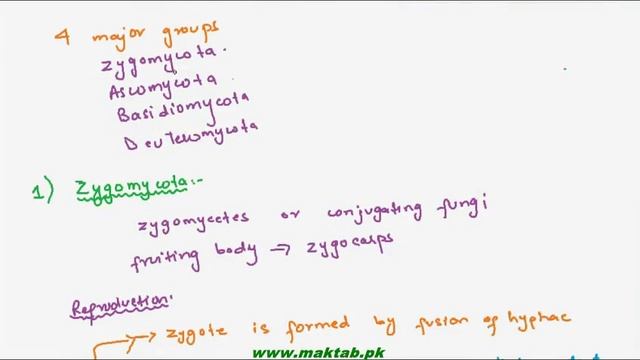 4 major groups
Zygomycota.
Ascomycota
Basidiomycota
Deuteromycota
1) Zygomycota:-
zygomycetes or conjugating fungi
fruiting body ⇒ zygocarps
Reproduction:
→ zygote is formed by fusion of hyphae
www.maktab.pk